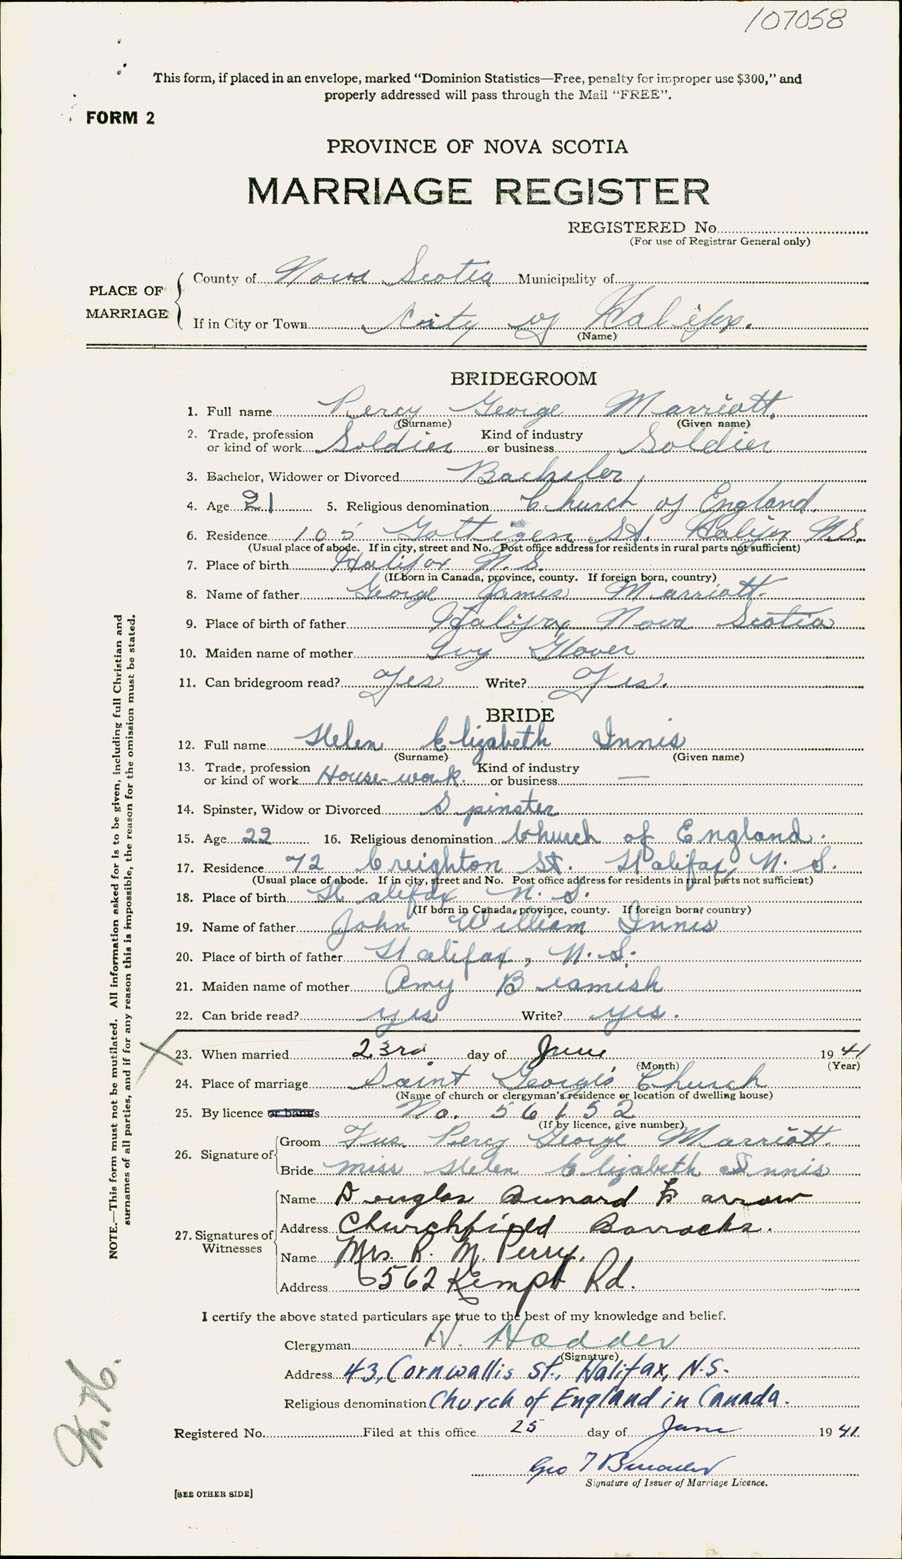 107058
This form, if placed in an envelope, marked "Dominion Statistics—Free, penalty for improper use $300," and
properly addressed will pass through the Mail "FREE".
FORM 2
PROVINCE OF NOVA SCOTIA
MARRIAGE REGISTER
REGISTERED No.
(For use of Registrar General only)
PLACE OF MARRIAGE
County of Nova Scotia Municipality of
If in City or Town City of Halifax.
(Name)
BRIDEGROOM
1. Full name Percy George Marriott.
(Surname) (Given name)
2. Trade, profession or kind of work Soldier Kind of industry or business Soldier
3. Bachelor, Widower or Divorced Bachelor
4. Age 21 5. Religious denomination Church of England.
6. Residence 105 Gottigen St. Halifax N.S.
(Usual place of abode. If in city, street and No. Post office address for residents in rural parts not sufficient)
7. Place of birth Halifax N.S.
(If born in Canada, province, county. If foreign born, country)
8. Name of father George James Marriott.
9. Place of birth of father Halifax, Nova Scotia
10. Maiden name of mother Ivy Glover
11. Can bridegroom read? Yes Write? Yes.
BRIDE
12. Full name Helen Elizabeth Innis
(Surname) (Given name)
13. Trade, profession or kind of work House-work. Kind of industry or business —
14. Spinster, Widow or Divorced Spinster
15. Age 22 16. Religious denomination Church of England.
17. Residence 72 Creighton St. Halifax, N. S.
(Usual place of abode. If in city, street and No. Post office address for residents in rural parts not sufficient)
18. Place of birth Halifax N. S.
(If born in Canada, province, county. If foreign born, country)
19. Name of father John William Innis
20. Place of birth of father Halifax, N. S.
21. Maiden name of mother Amy Beamish
22. Can bride read? yes Write? yes.
23. When married 23rd day of June, 1941
(Month) (Year)
24. Place of marriage Saint George's Church
(Name of church or clergyman's residence or location of dwelling house)
25. By licence or banns No. 56152
(If by licence, give number)
26. Signature of Groom Fus. Percy George Marriott.
Bride Miss Helen Elizabeth Innis
27. Signatures of Witnesses
Name Douglas
Address Churchfield Barracks.
Name Mrs. R. M. Perry.
Address 562 Kempt Rd.
I certify the above stated particulars are true to the best of my knowledge and belief.
Clergyman H. Hodder
(Signature)
Address 43, Cornwallis St., Halifax, N.S.
Religious denomination Church of England in Canada.
Registered No. Filed at this office 25 day of June 1941.
Geo T
Signature of Issuer of Marriage Licence.
[SEE OTHER SIDE]
NOTE.—This form must not be mutilated. All information asked for is to be given, including full Christian and
surnames of all parties, and if for any reason this is impossible, the reason for the omission must be stated.